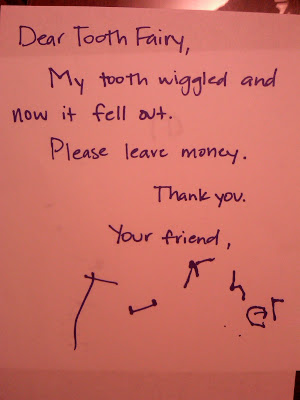 Dear Tooth Fairy,
My tooth wiggled and
now it fell out.
Please leave money.
Thank you.
Your friend,